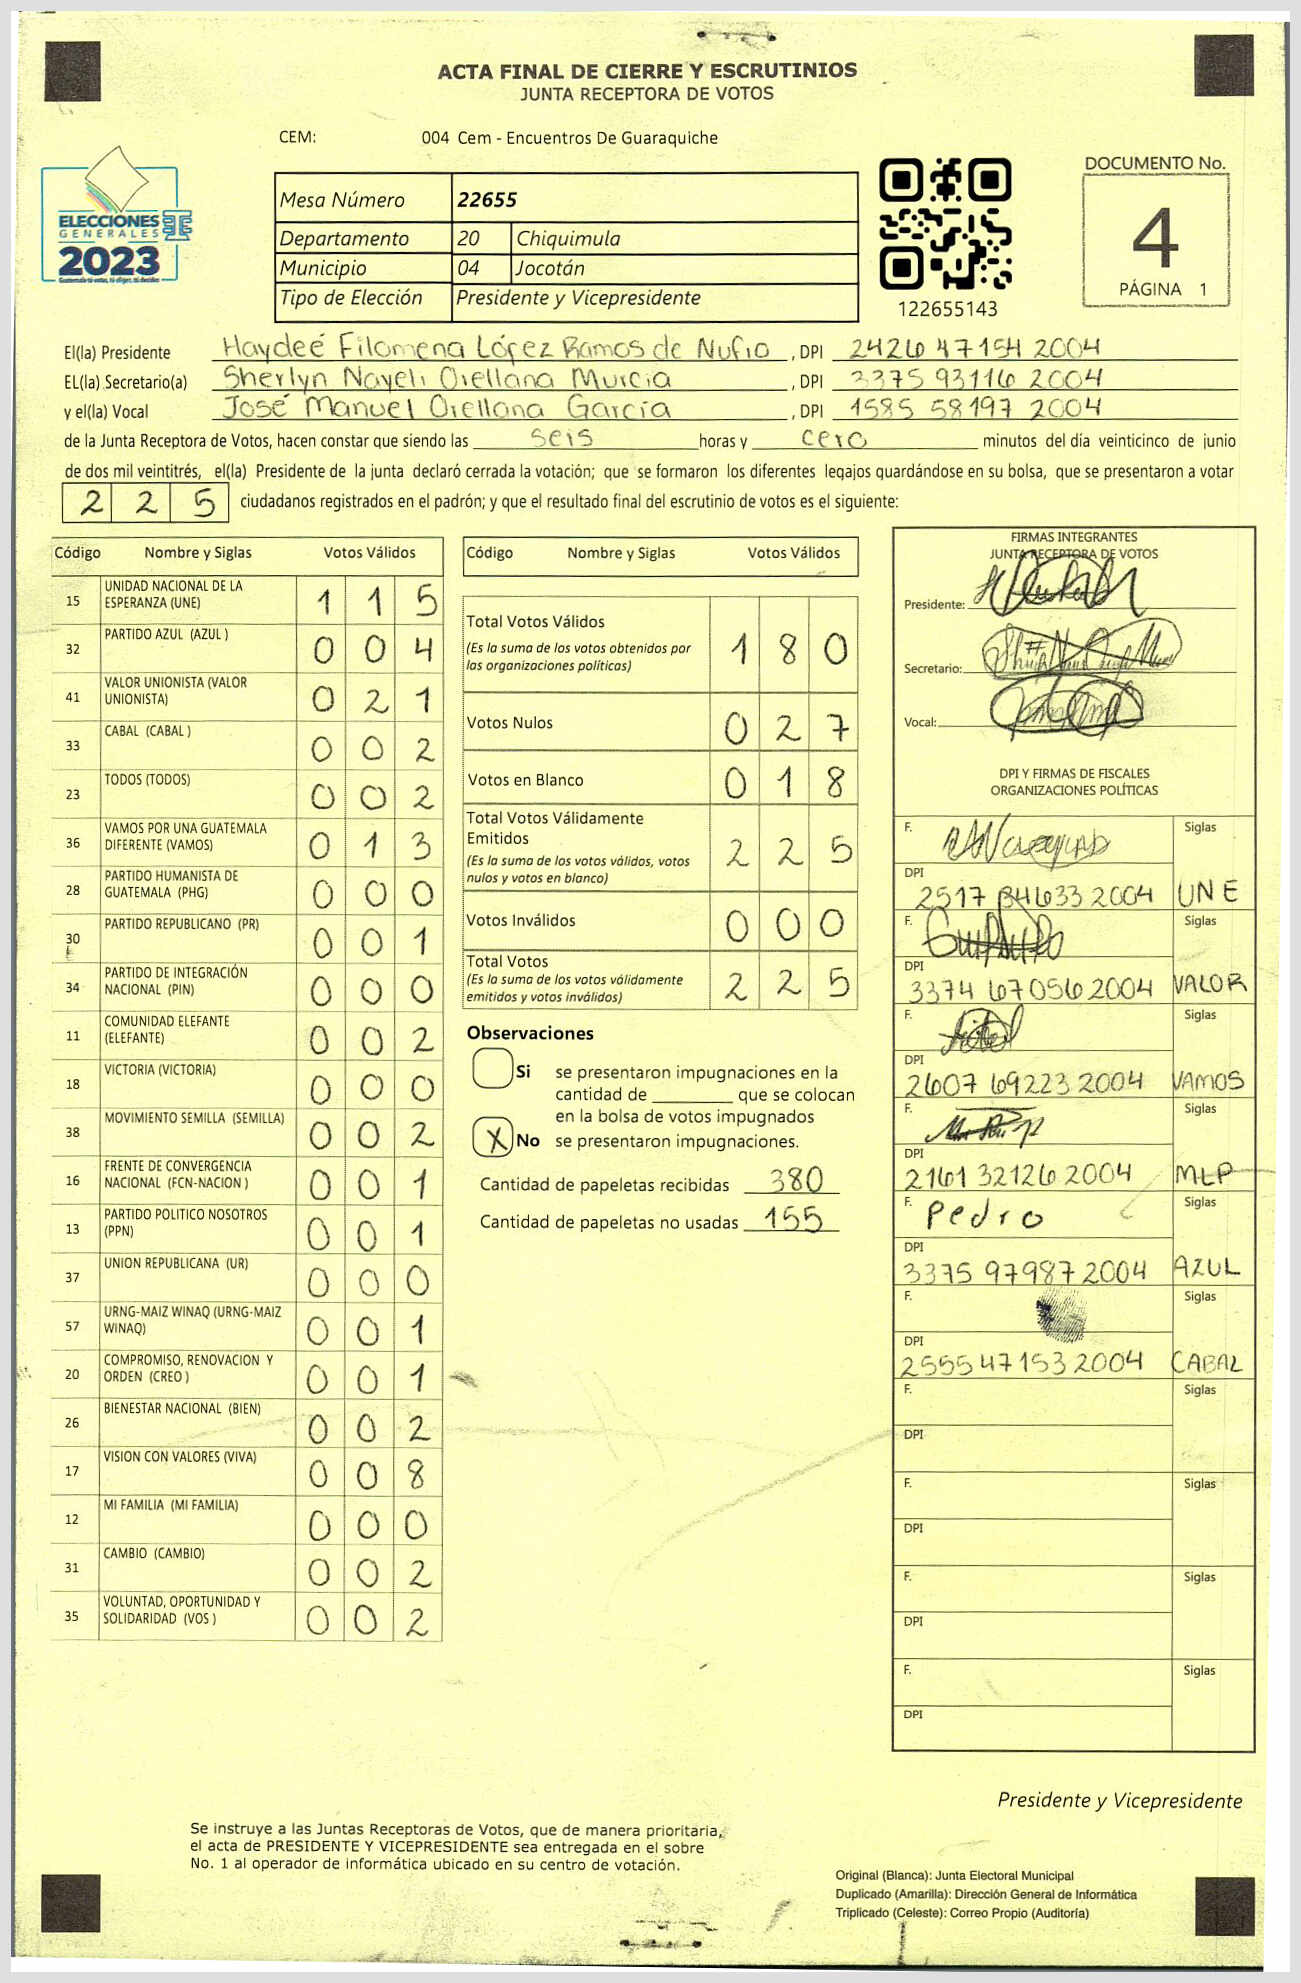 ACTA FINAL DE CIERRE Y ESCRUTINIOS
JUNTA RECEPTORA DE VOTOS
CEM: 004 Cem - Encuentros De Guaraquiche
ELECCIONES
GENERALES
2023
Mesa Número 22655
Departamento 20 Chiquimula
Municipio 04 Jocotán
Tipo de Elección Presidente y Vicepresidente
122655143
DOCUMENTO No.
4
PÁGINA 1
El(la) Presidente Haydeé Filomena López Ramos de Nufio , DPI 2426 47154 2004
EL(la) Secretario(a) Sherlyn Nayeli Orellana Murcia , DPI 3375 93116 2004
y el(la) Vocal José Manuel Orellana García , DPI 1585 58197 2004
de la Junta Receptora de Votos, hacen constar que siendo las seis horas y cero minutos del día veinticinco de junio
de dos mil veintitrés, el(la) Presidente de la junta declaró cerrada la votación; que se formaron los diferentes legajos quardándose en su bolsa, que se presentaron a votar
2 2 5 ciudadanos registrados en el padrón; y que el resultado final del escrutinio de votos es el siguiente:
Código Nombre y Siglas Votos Válidos
15 UNIDAD NACIONAL DE LA
ESPERANZA (UNE) 1 1 5
32 PARTIDO AZUL (AZUL ) 0 0 4
41 VALOR UNIONISTA (VALOR
UNIONISTA) 0 2 1
33 CABAL (CABAL ) 0 0 2
23 TODOS (TODOS) 0 0 2
36 VAMOS POR UNA GUATEMALA
DIFERENTE (VAMOS) 0 1 3
28 PARTIDO HUMANISTA DE
GUATEMALA (PHG) 0 0 0
30 PARTIDO REPUBLICANO (PR) 0 0 1
34 PARTIDO DE INTEGRACIÓN
NACIONAL (PIN) 0 0 0
11 COMUNIDAD ELEFANTE
(ELEFANTE) 0 0 2
18 VICTORIA (VICTORIA) 0 0 0
38 MOVIMIENTO SEMILLA (SEMILLA) 0 0 2
16 FRENTE DE CONVERGENCIA
NACIONAL (FCN-NACION ) 0 0 1
13 PARTIDO POLITICO NOSOTROS
(PPN) 0 0 1
37 UNION REPUBLICANA (UR) 0 0 0
57 URNG-MAIZ WINAQ (URNG-MAIZ
WINAQ) 0 0 1
20 COMPROMISO, RENOVACION Y
ORDEN (CREO ) 0 0 1
26 BIENESTAR NACIONAL (BIEN) 0 0 2
17 VISION CON VALORES (VIVA) 0 0 8
12 MI FAMILIA (MI FAMILIA) 0 0 0
31 CAMBIO (CAMBIO) 0 0 2
35 VOLUNTAD, OPORTUNIDAD Y
SOLIDARIDAD (VOS ) 0 0 2
Código Nombre y Siglas Votos Válidos
Total Votos Válidos
(Es la suma de los votos obtenidos por
las organizaciones políticas) 1 8 0
Votos Nulos 0 2 7
Votos en Blanco 0 1 8
Total Votos Válidamente
Emitidos
(Es la suma de los votos válidos, votos
nulos y votos en blanco) 2 2 5
Votos Inválidos 0 0 0
Total Votos
(Es la suma de los votos válidamente
emitidos y votos inválidos) 2 2 5
Observaciones
Si se presentaron impugnaciones en la
cantidad de ________ que se colocan
en la bolsa de votos impugnados
X No se presentaron impugnaciones.
Cantidad de papeletas recibidas 380
Cantidad de papeletas no usadas 155
FIRMAS INTEGRANTES
JUNTA RECEPTORA DE VOTOS
Presidente:
Secretario:
Vocal:
DPI Y FIRMAS DE FISCALES
ORGANIZACIONES POLÍTICAS
F. Siglas
DPI
2517 84633 2004 UNE
F. Siglas
DPI
3374 67056 2004 VALOR
F. Siglas
DPI
2607 69223 2004 VAMOS
F. Siglas
DPI
2161 32126 2004 MLP
F. Pedro Siglas
DPI
3375 97987 2004 AZUL
F. Siglas
DPI
2555 47153 2004 CABAL
F. Siglas
DPI
F. Siglas
DPI
F. Siglas
DPI
F. Siglas
DPI
Presidente y Vicepresidente
Se instruye a las Juntas Receptoras de Votos, que de manera prioritaria,
el acta de PRESIDENTE Y VICEPRESIDENTE sea entregada en el sobre
No. 1 al operador de informática ubicado en su centro de votación.
Original (Blanca): Junta Electoral Municipal
Duplicado (Amarilla): Dirección General de Informática
Triplicado (Celeste): Correo Propio (Auditoría)